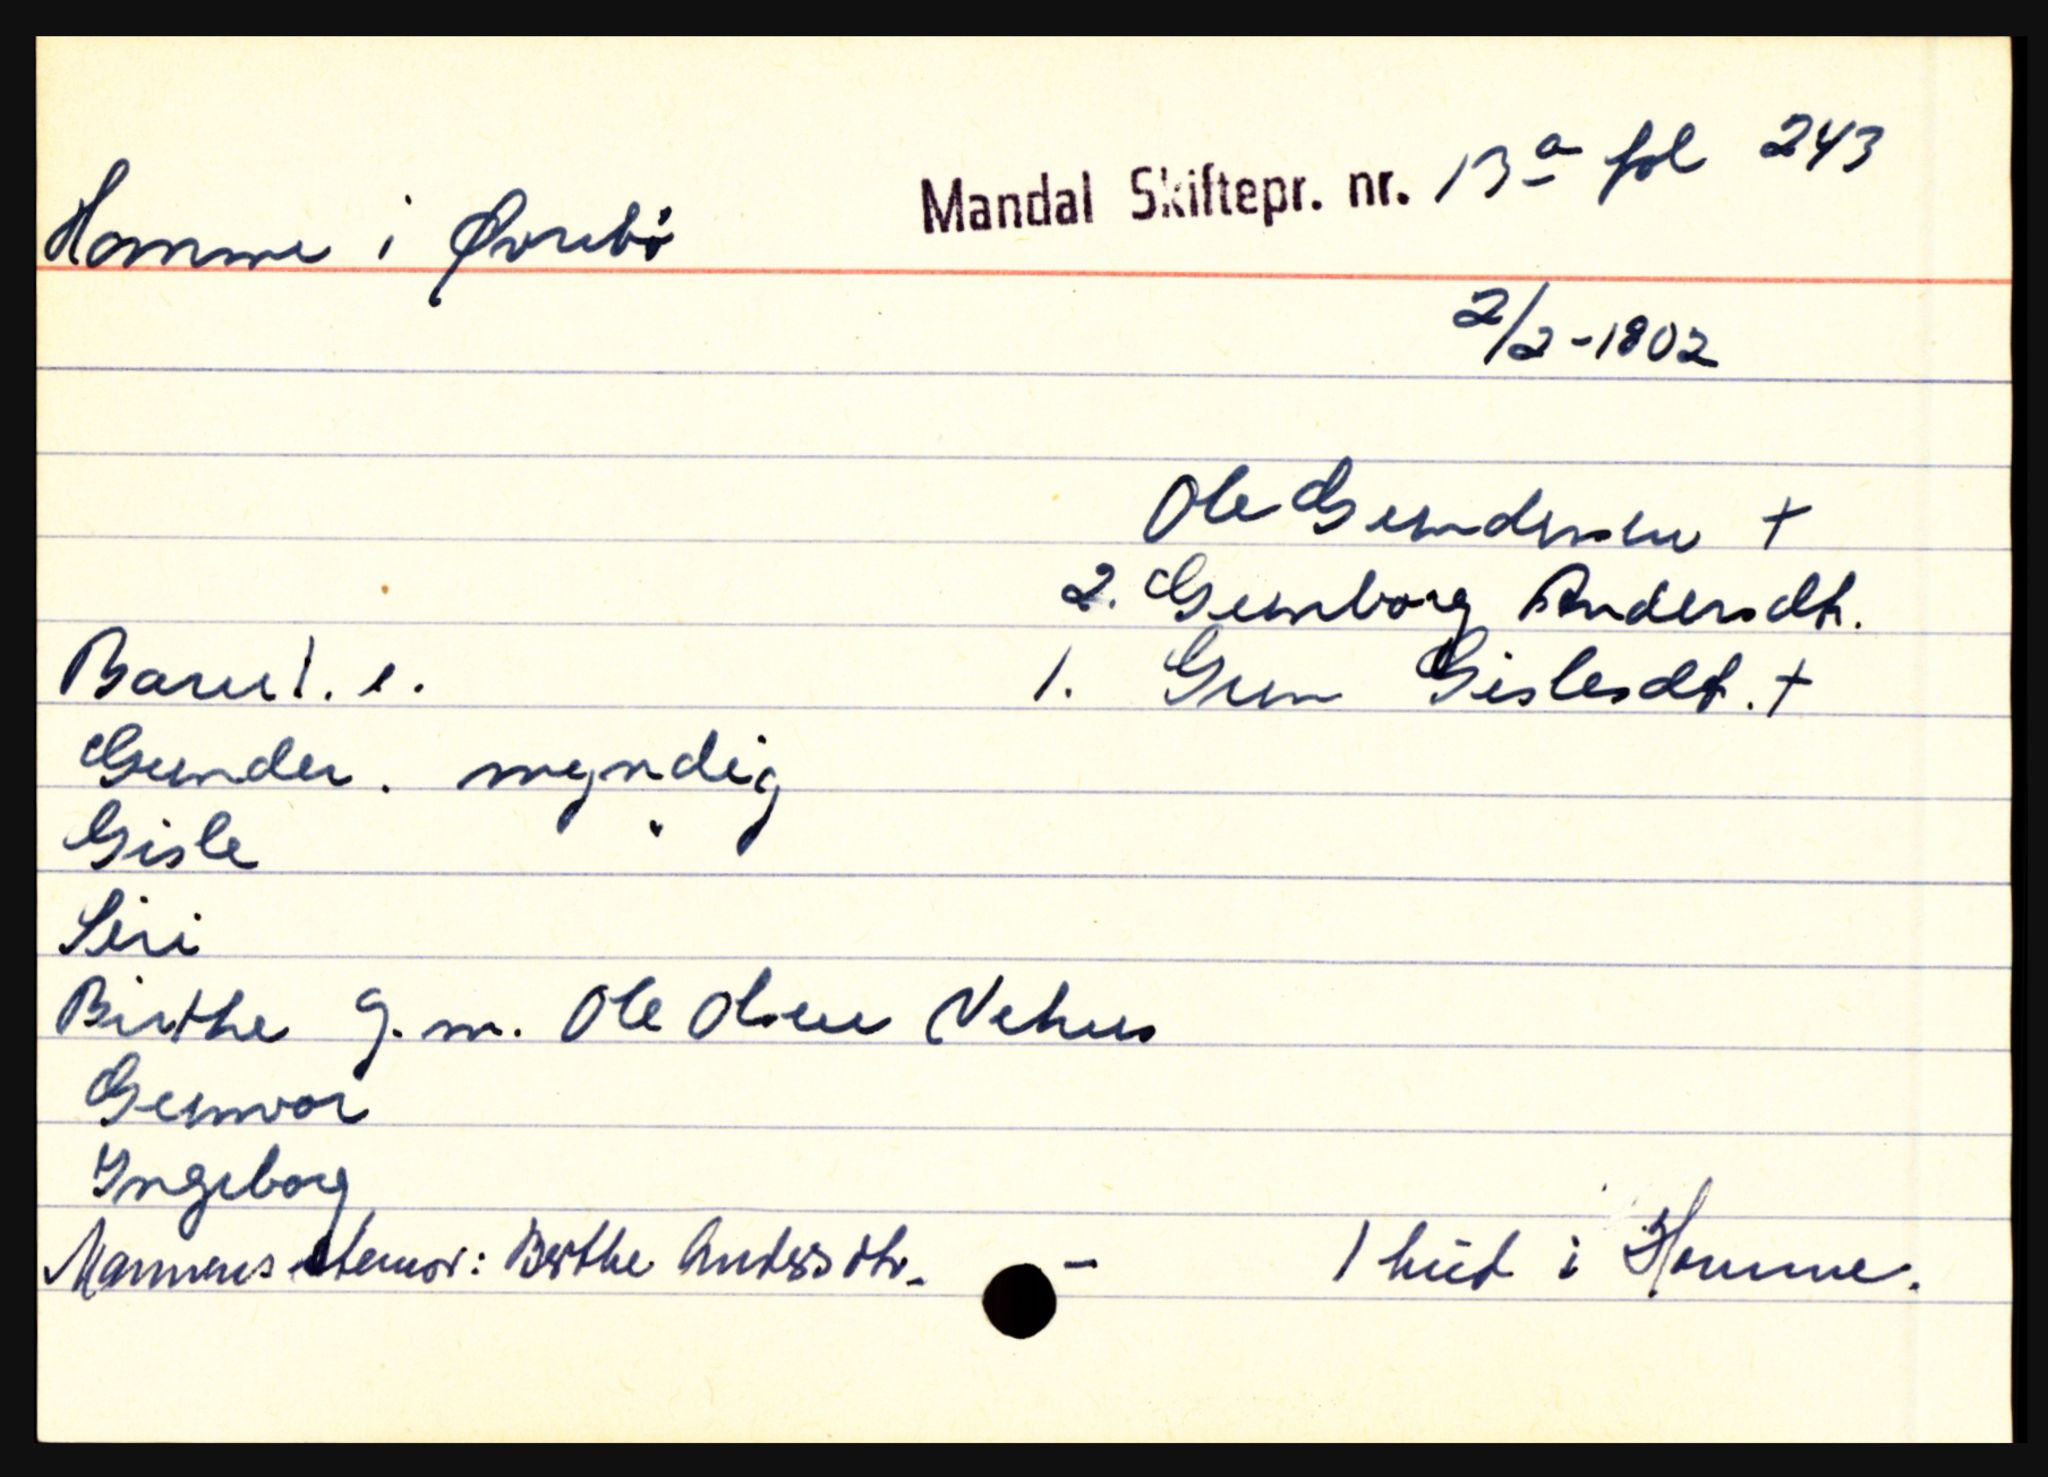 Mandal Skiftepr. nr. 13a fol 243
Homme i Øvrebø
2/2-1802
Ole Gundersen +
2. Gunborg Andersdt.
Barn 1. e. 1. Gun Gislesdt. +
Gunder. myndig
Gisle
Siri
Birthe g. m. Ole Olsen Vehus
Gunvor
Ingeborg
Mannens stemor: Berthe Andersdtr. - 1 hud i Homme.